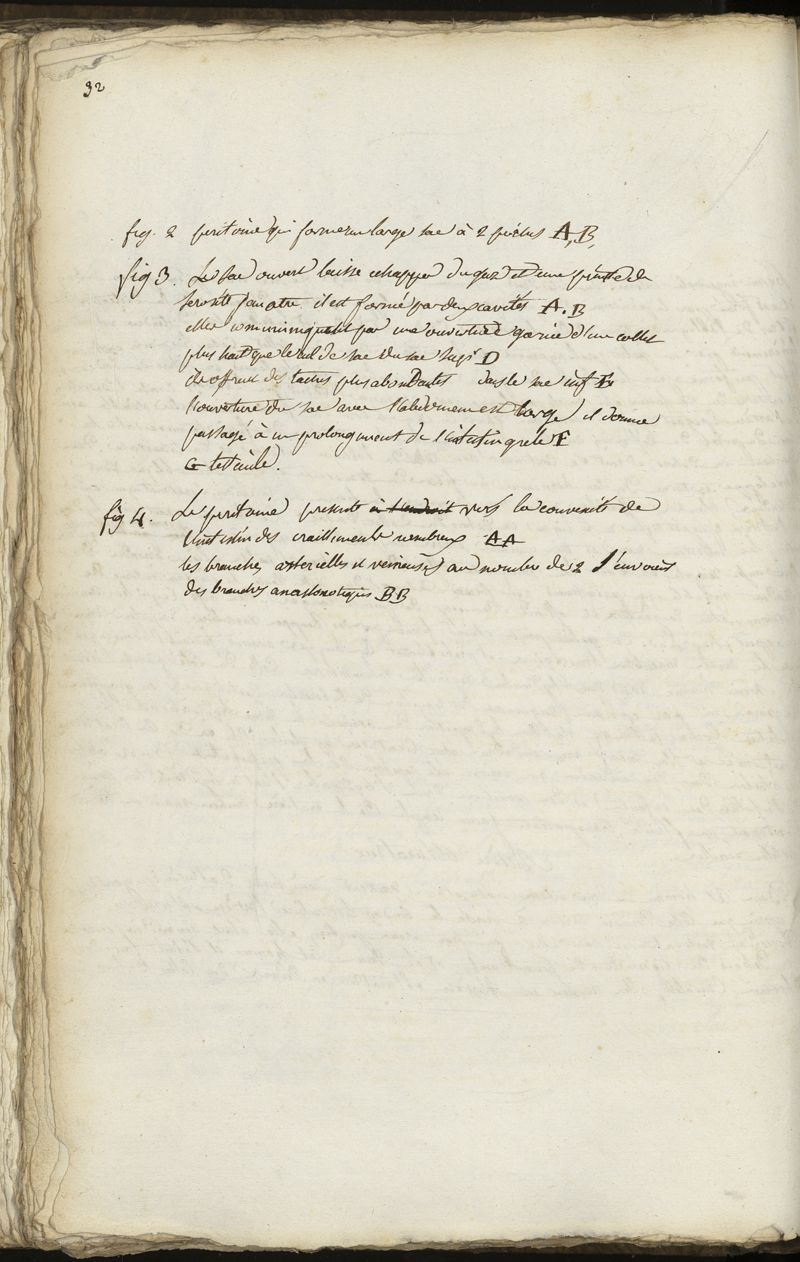 32
fig. 2 peritoine qui forme un large sac à 2 A, B,
fig 3. Le sac ouvert laisse echapper du gaz et une pinte de
serosité jaunatre il est formé par deux cavités A. B
elles communiquent par une ouverture garnie d'un collet
plus haut que le cul de sac du sac supr D
ils offrent des taches plus abondantes dans le sac inf E
l'ouverture du sac avec l'abdomen est large il donne
passage à un prolongement de l'intestin grêle F
G
fig 4. Le peritoine presente à l'endroit vers la convexité de
l'intestin des eraillements nombreux AA
les branches arterielles et veineuses au nombre de 2 s'envoient
des branches anastomotiques BB